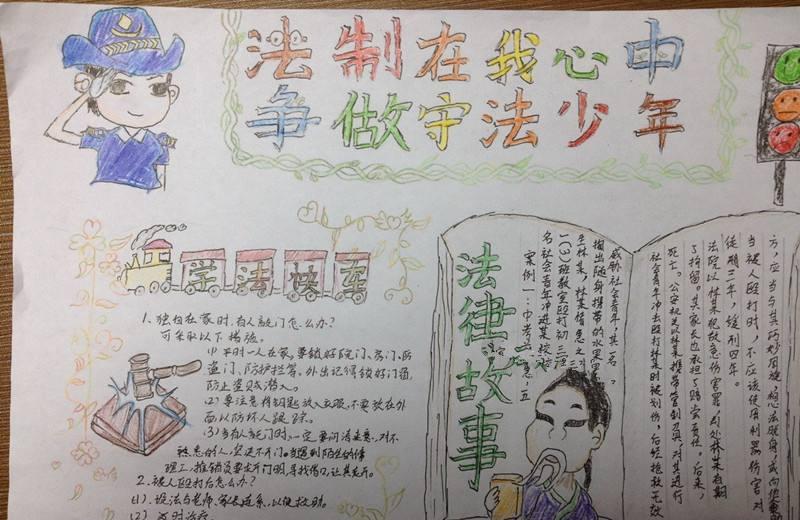 法制在我心中
争做守法少年
学法快车
1、独自在家时,有人敲门怎么办?
可采取以下措施。
(1)平时一人在家,要锁好院门、房门、防
盗门、防护栏等。外出记得锁好门窗,
防止盗贼潜入。
(2)要注意将钥匙放入衣服,不要放在外
面以防坏人跟踪。
(3)当有人敲门时,一定要问清来意,对不
熟悉的人,坚决不开门。当遇到陌生的修
理工,推销员要求开门时,寻找借口,让其离开。
2、被人殴打后怎么办?
(1)、设法与老师、家长联系,以便救助。
(2)及时治疗
法律故事
案例一:中考
名社会青年冲进某校初
一(3)班教室殴打初三
生林某,林某情急之
掏出随身携带的水果
威胁社会青年,其
社会青年冲去殴打林某时被划伤,后经抢救无效
死亡。公安机关以林某携带管制刀具,对其进行
了拘留。其家长也承担了赔偿责任。后来,
法院以林某犯故意伤害罪,判处林某有期
徒刑三年,缓刑四年。
当被人殴打时,不应该使用利器伤害对
方,应当与其巧妙周旋,想法脱身,或向